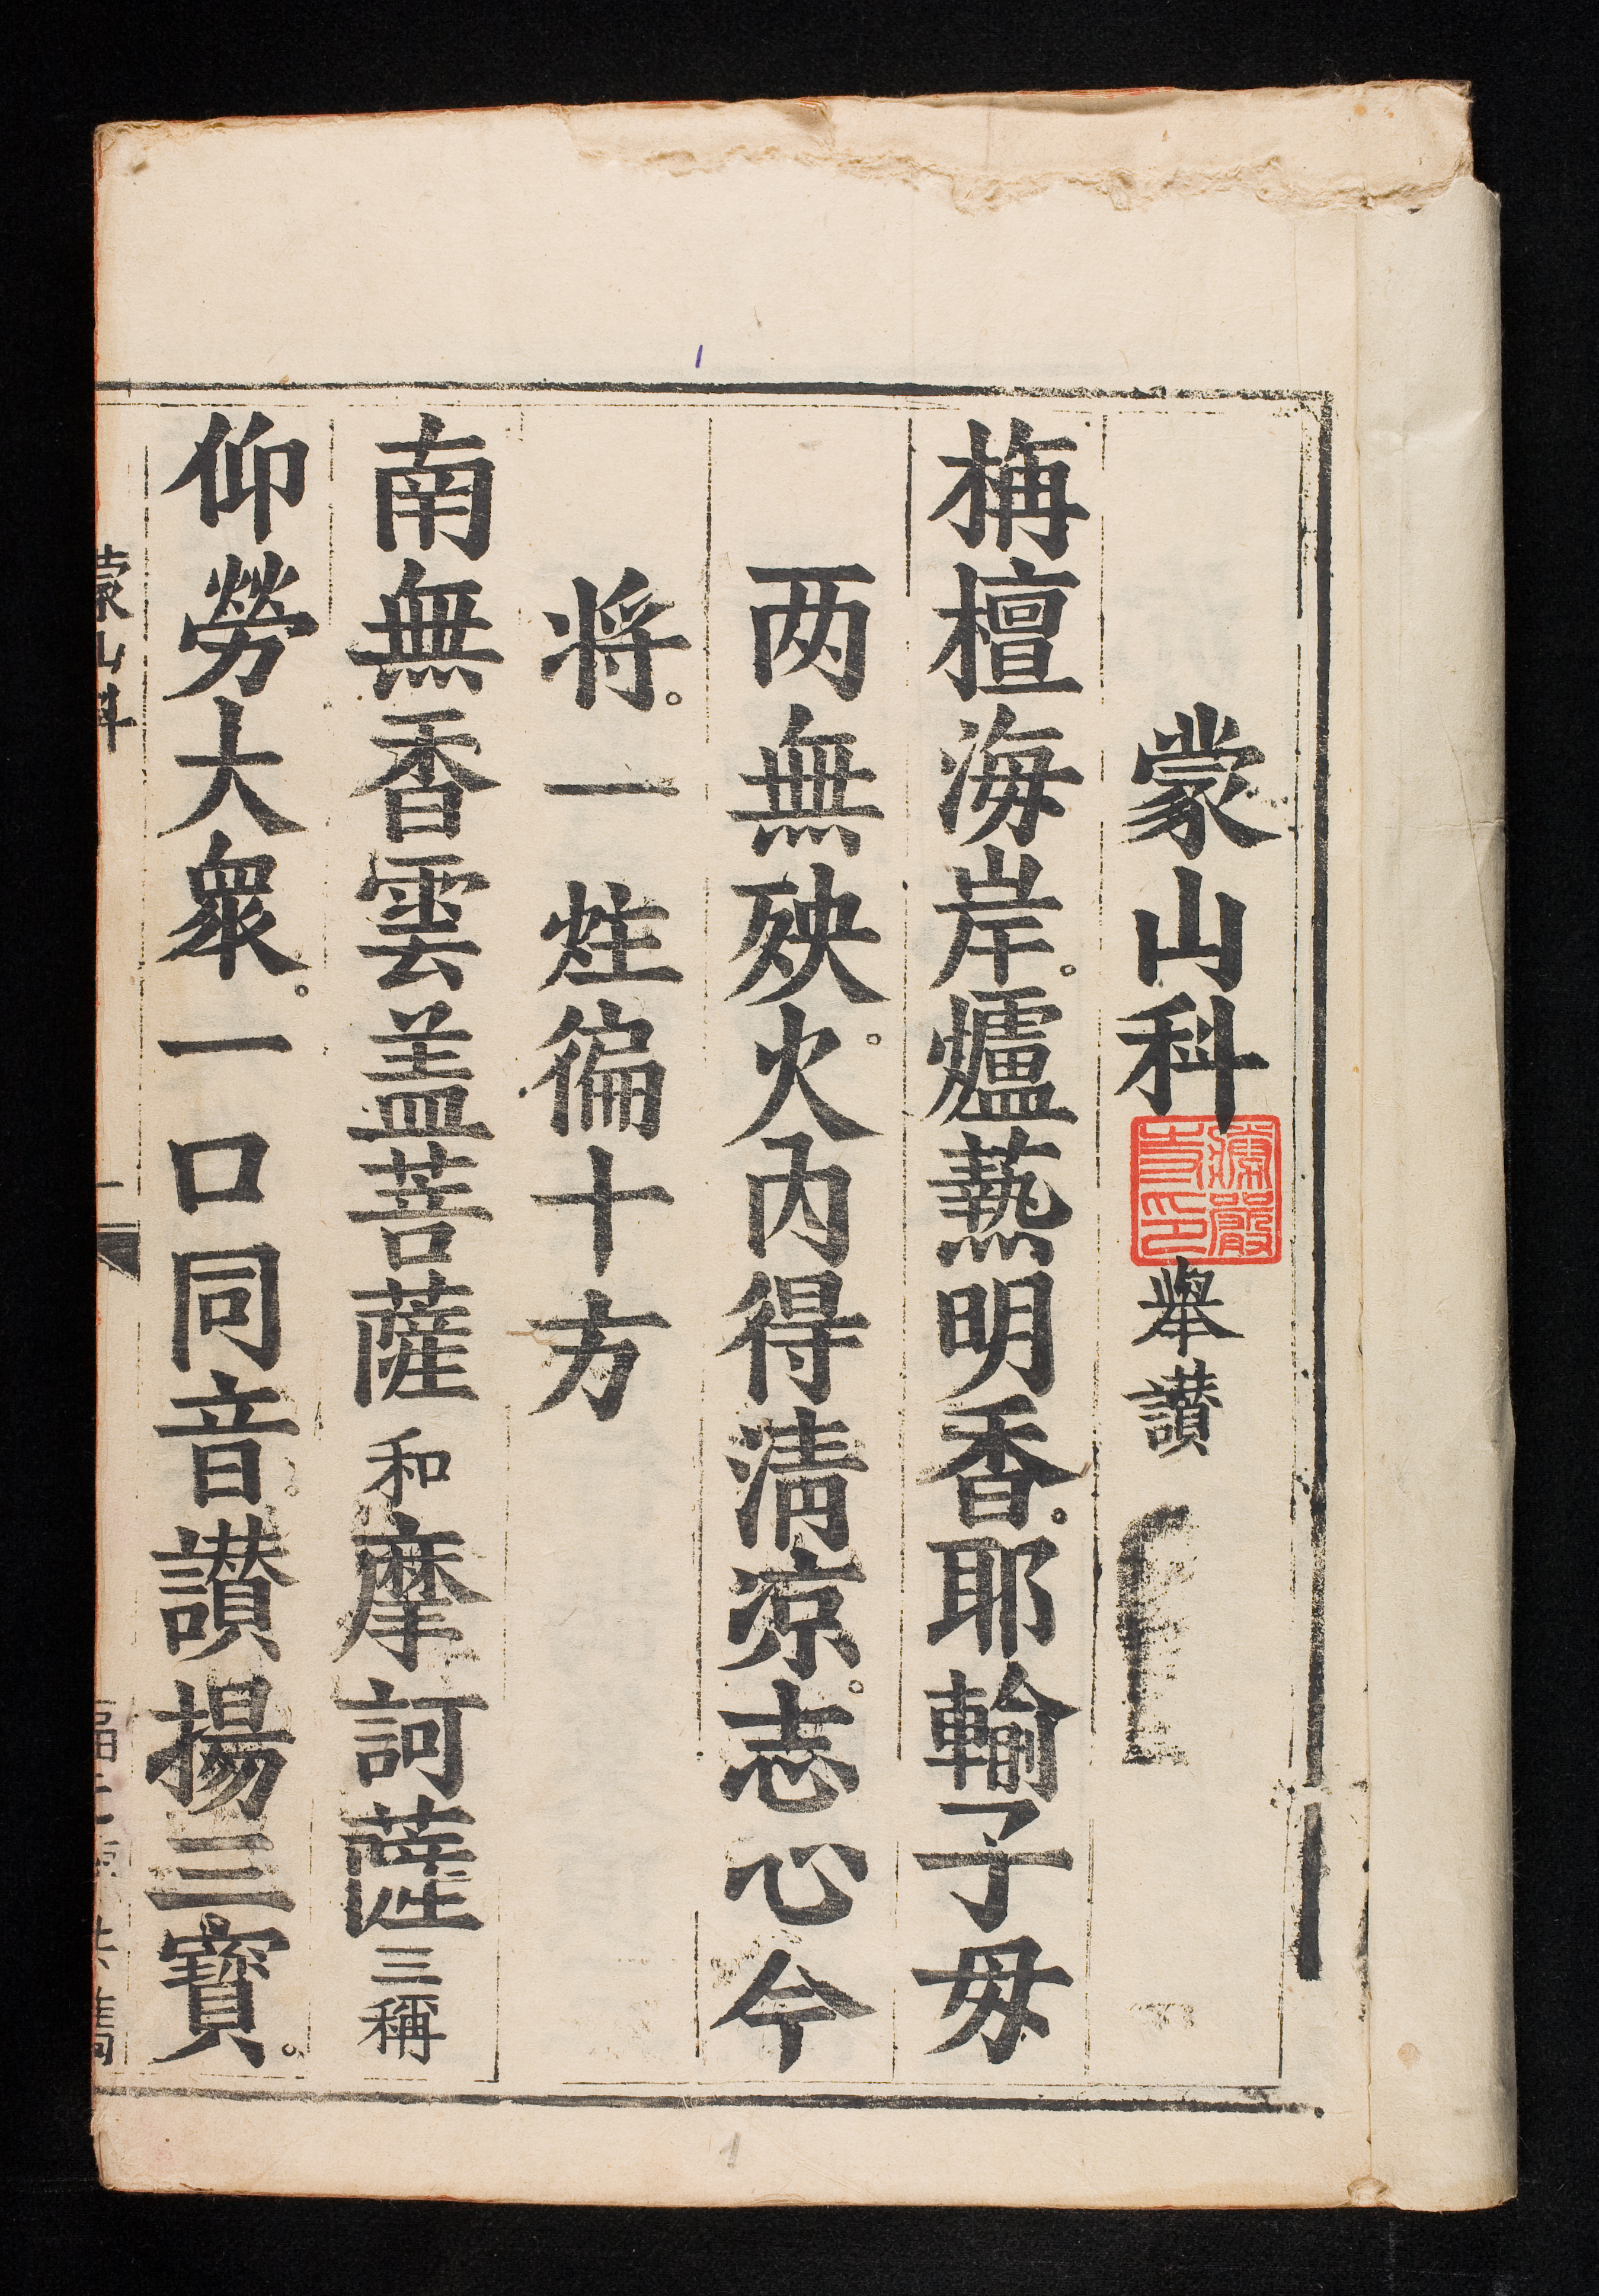 蒙山科 舉讃
栴檀海岸。爐爇明香。耶輸子毋
两無殃。火內得清凉。志心今
将。一炷徧十方
南無香雲盖菩薩 和 摩訶薩 三稱
仰勞大眾。一口同音。讃揚三寳。
蒙山科